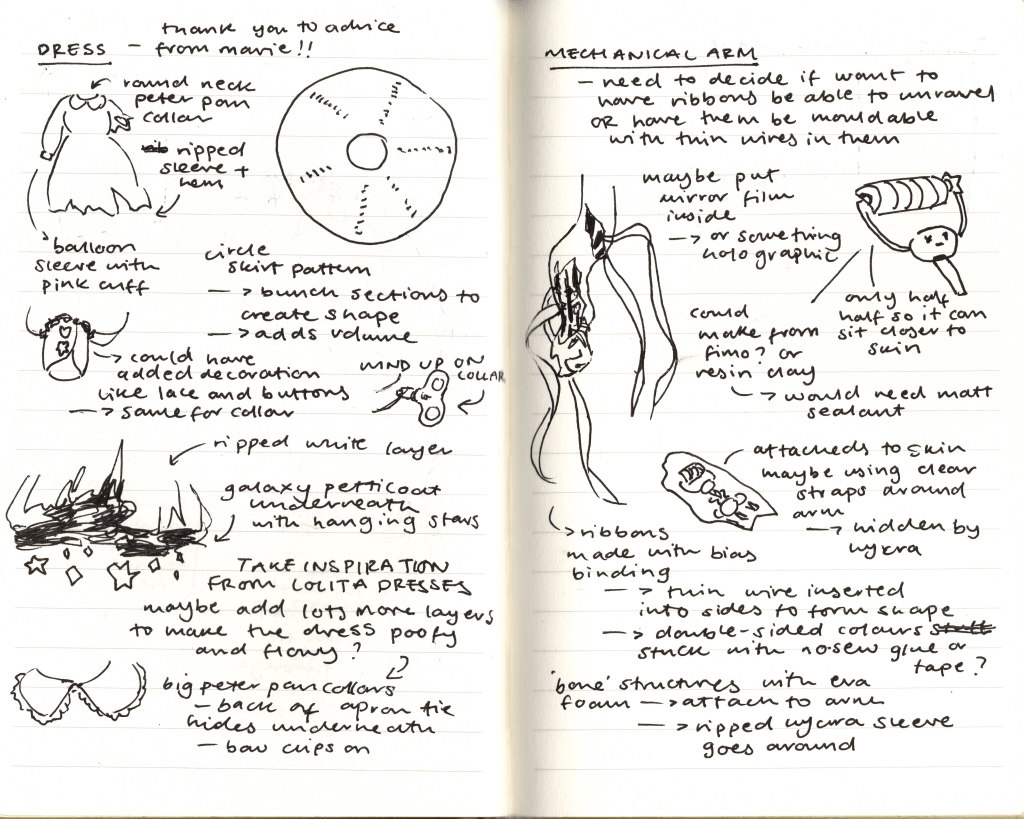 thank you to advice
DRESS — from marie!!
round neck
peter pan
collar
ripped
sleeve +
hem
balloon
sleeve with
pink cuff
circle
skirt pattern
—> bunch sections to
create shape
—> adds volume
—> could have
added decoration
like lace and buttons
—> same for collar
WIND UP ON
COLLAR
ripped white layer
galaxy petticoat
underneath
with hanging stars
TAKE INSPIRATION
FROM LOLITA DRESSES
maybe add lots more layers
to make the dress poofy
and flowy?
big peter pan collars
— back of apron tie
hides underneath
— bow clips on
MECHANICAL ARM
— need to decide if want to
have ribbons be able to unravel
OR have them be mouldable
with thin wires in them
maybe put
mirror film
inside
—> or something
holographic
only half
half so it can
sit closer to
skin
could
make from
fimo? or
resin clay
—> would need matt
sealant
attacheds to skin
maybe using clear
straps around
arm
—> hidden by
lycra
> ribbons
made with bias
binding
—> thin wire inserted
into sides to form shape
—> double-sided colours
stuck with no sew glue or
tape?
'bone' structures with eva
foam —> attach to arm
—> ripped lycra sleeve
goes around